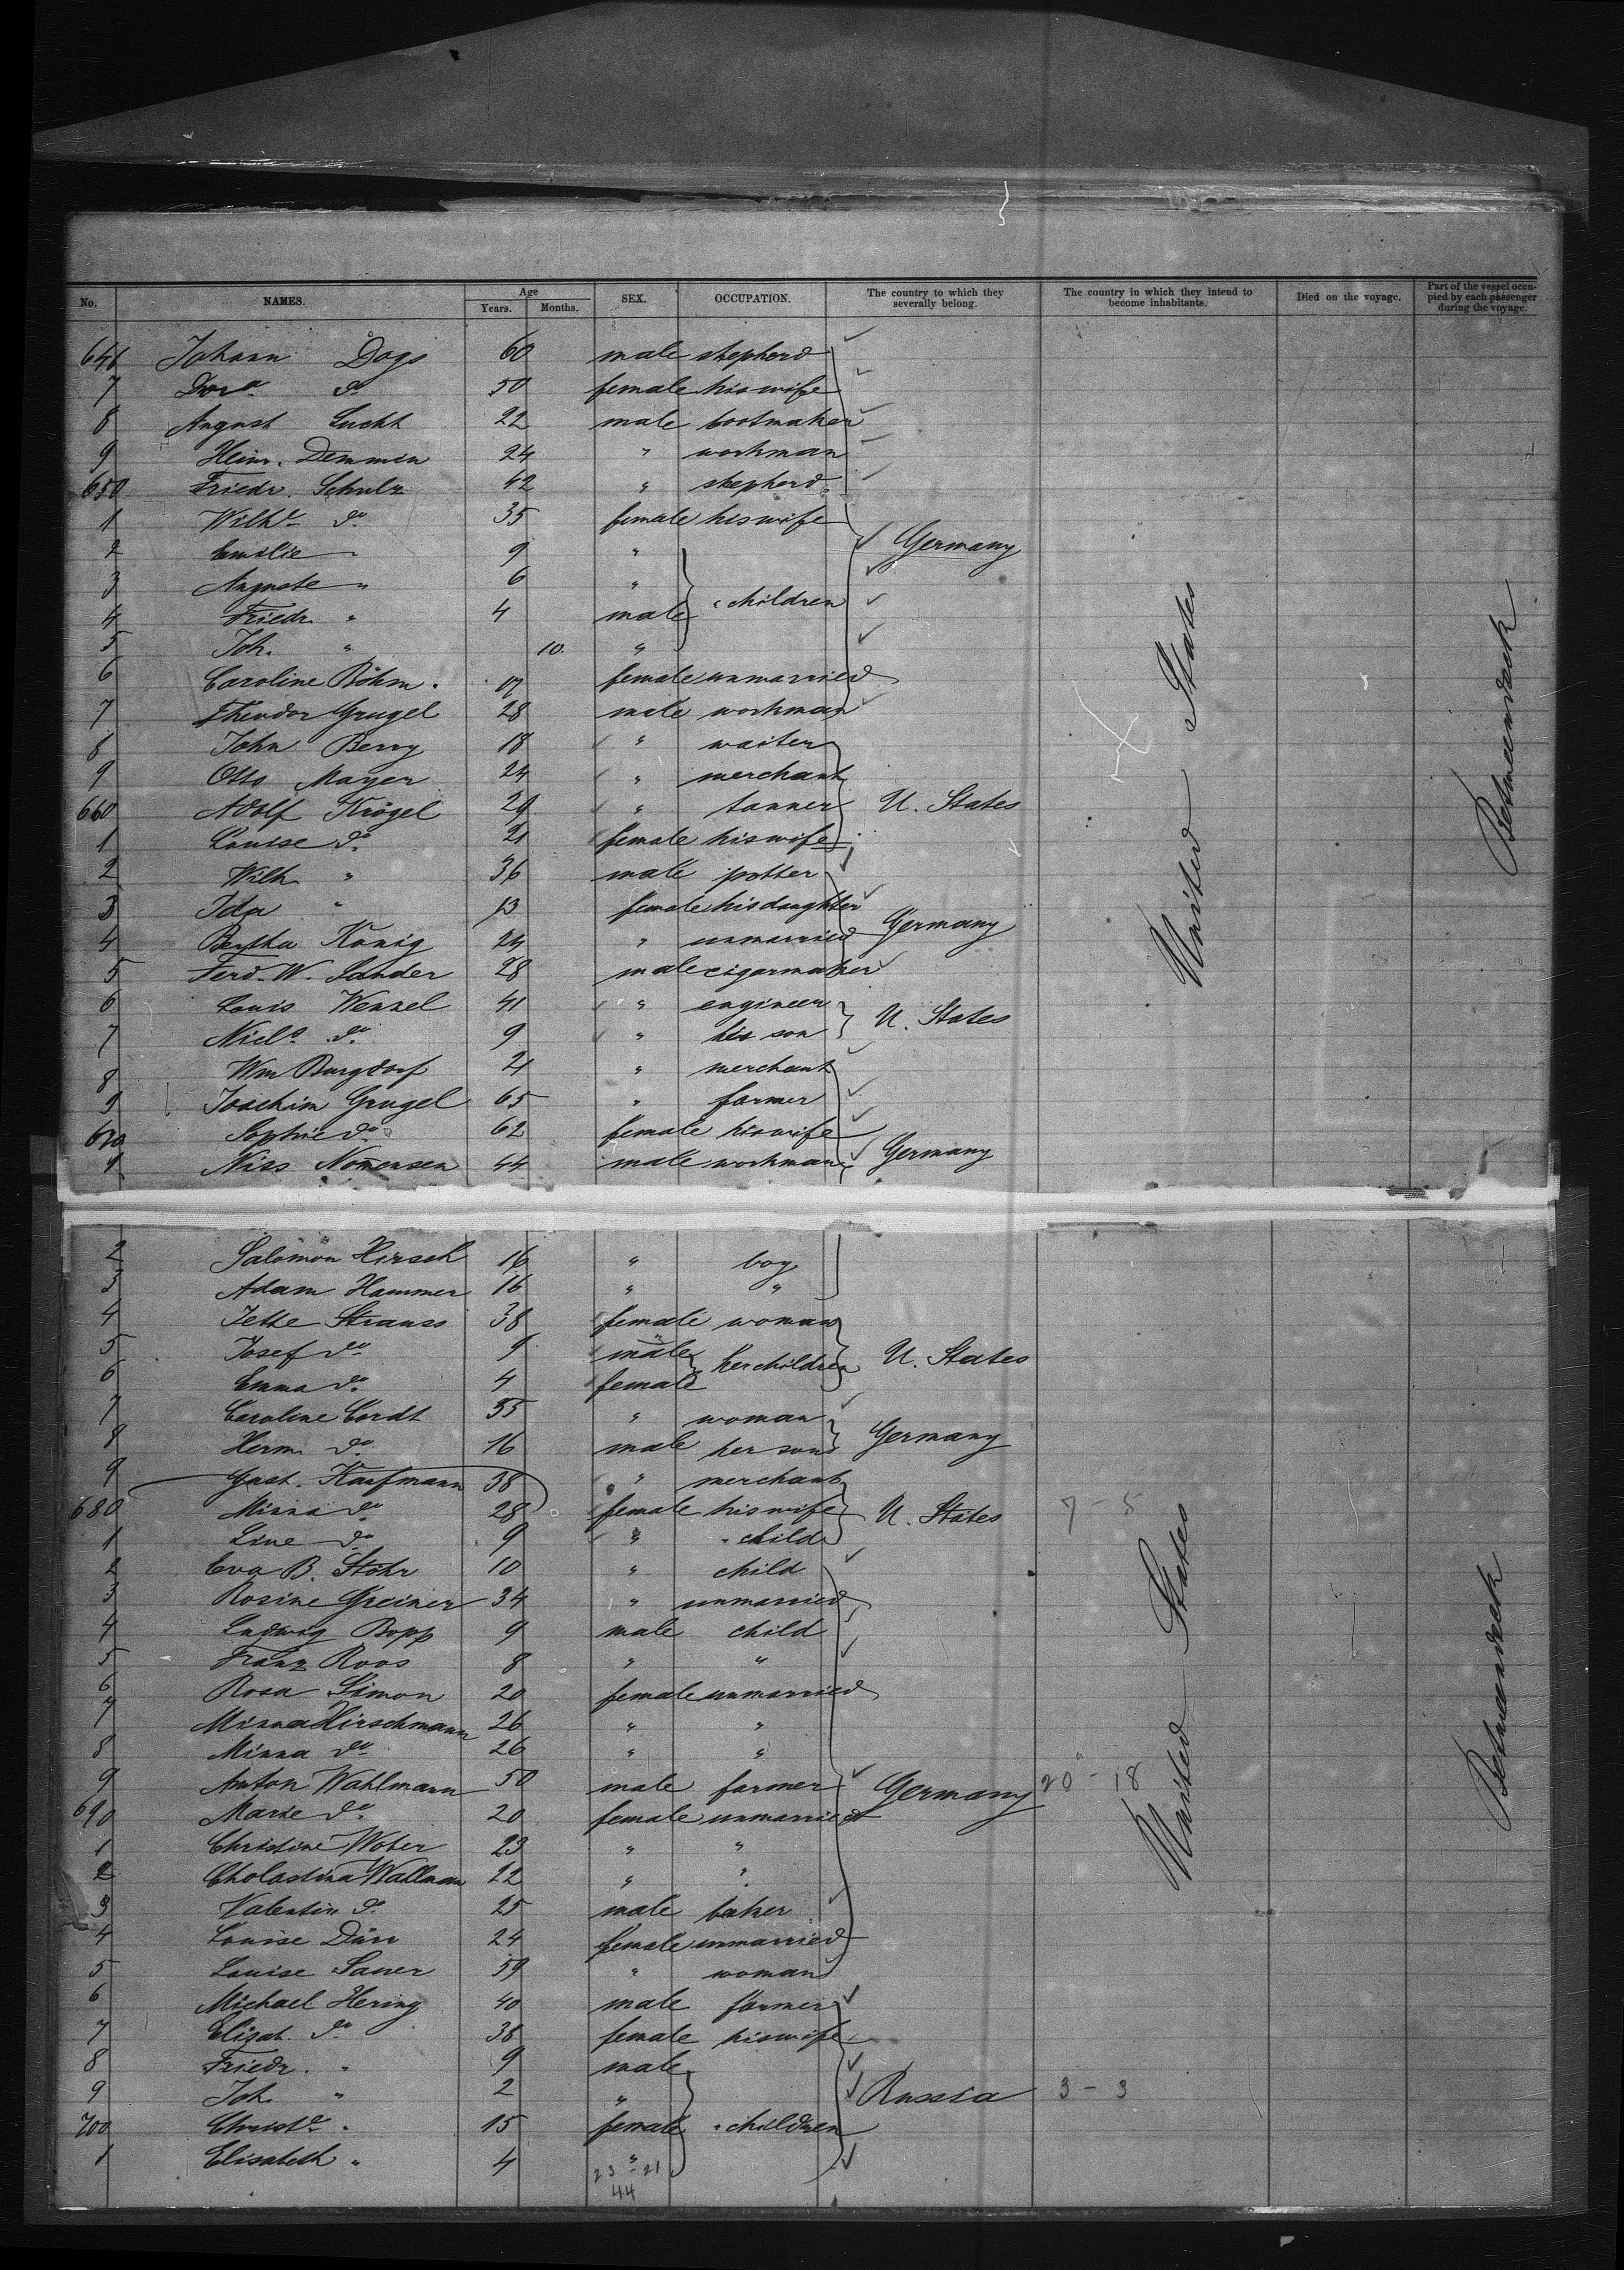 No. NAMES. Age Years. Months. SEX. OCCUPATION. The country to which they severally belong. The country in which they intend to become inhabitants. Died on the voyage. Part of the vessel occupied by each passenger during the voyage.
646 Johann Dogs 60 male shepherd
7 Dora do 50 female his wife
8 August Lucht 22 male bootmaker
9 Heinr. Demmin 24 " workman
650 Friedr. Schulz 42 " shepherd
1 Wilhe do 35 female his wife
2 Emilie " 9 " Germany
3 Auguste " 6 "
4 Friedr. " 4 male " children
5 Joh. " 10. "
6 Caroline Böhm. 19 female unmarried
7 Theodor Grugel 28 male workman
8 John Berry 18 " waiter
9 Otto Mayer 24 " merchant
660 Adolf Krögel 29 " tanner U. States
1 Louise do 21 female his wife
2 Wilh " 36 male potter
3 Ida " 13 female his daughter
4 Bertha König 24 " unmarried Germany
5 Ferd. W. Sander 28 male cigarmaker
6 Louis Wenzel 41 " engineer
7 Niclo do 9 " his son U. States
8 Wm Burgdorf 21 " merchant
9 Joachim Grugel 65 " farmer
670 Sophie do 62 female his wife
1 Niss Nommensen 44 male workman Germany
2 Salomon Hirsch 16 " boy
3 Adam Hammer 16 " "
4 Jette Strauss 38 female woman
5 Josef do 9 male her children U. States
6 Emma do 4 female
7 Caroline Cordt 55 " woman
8 Herm. do 16 male her son Germany
9 Gust. Kaufmann 38 " merchant
680 Minna do 28 female his wife U. States 7 - 5
1 Line do 9 " " child
2 Eva B. Stöhr 10 " child
3 Rosine Greiner 34 " unmarried
4 Ludwig Bopp 9 male child
5 Franz Roos 8 " "
6 Rosa Simon 20 female unmarried
7 Minna Hirschmann 26 " "
8 Minna do 26 " "
9 Anton Wahlmann 50 male farmer Germany 20 - 18
690 Marie do 20 female unmarried
1 Christine Wober 23 " "
2 Cholastina Wallman 22 " "
3 Valentin do 25 male baker
4 Louise Dürr 24 female unmarried
5 Louise Sauer 59 " woman
6 Michael Hering 40 male farmer
7 Elisab. do 38 female his wife
8 Friedr. " 9 male
9 Joh. " 2 " Russia 3 - 3
700 Christe " 15 female " children
1 Elisabeth " 4 "
23 - 21
44
United States
Betweendeck
United States
Betweendeck